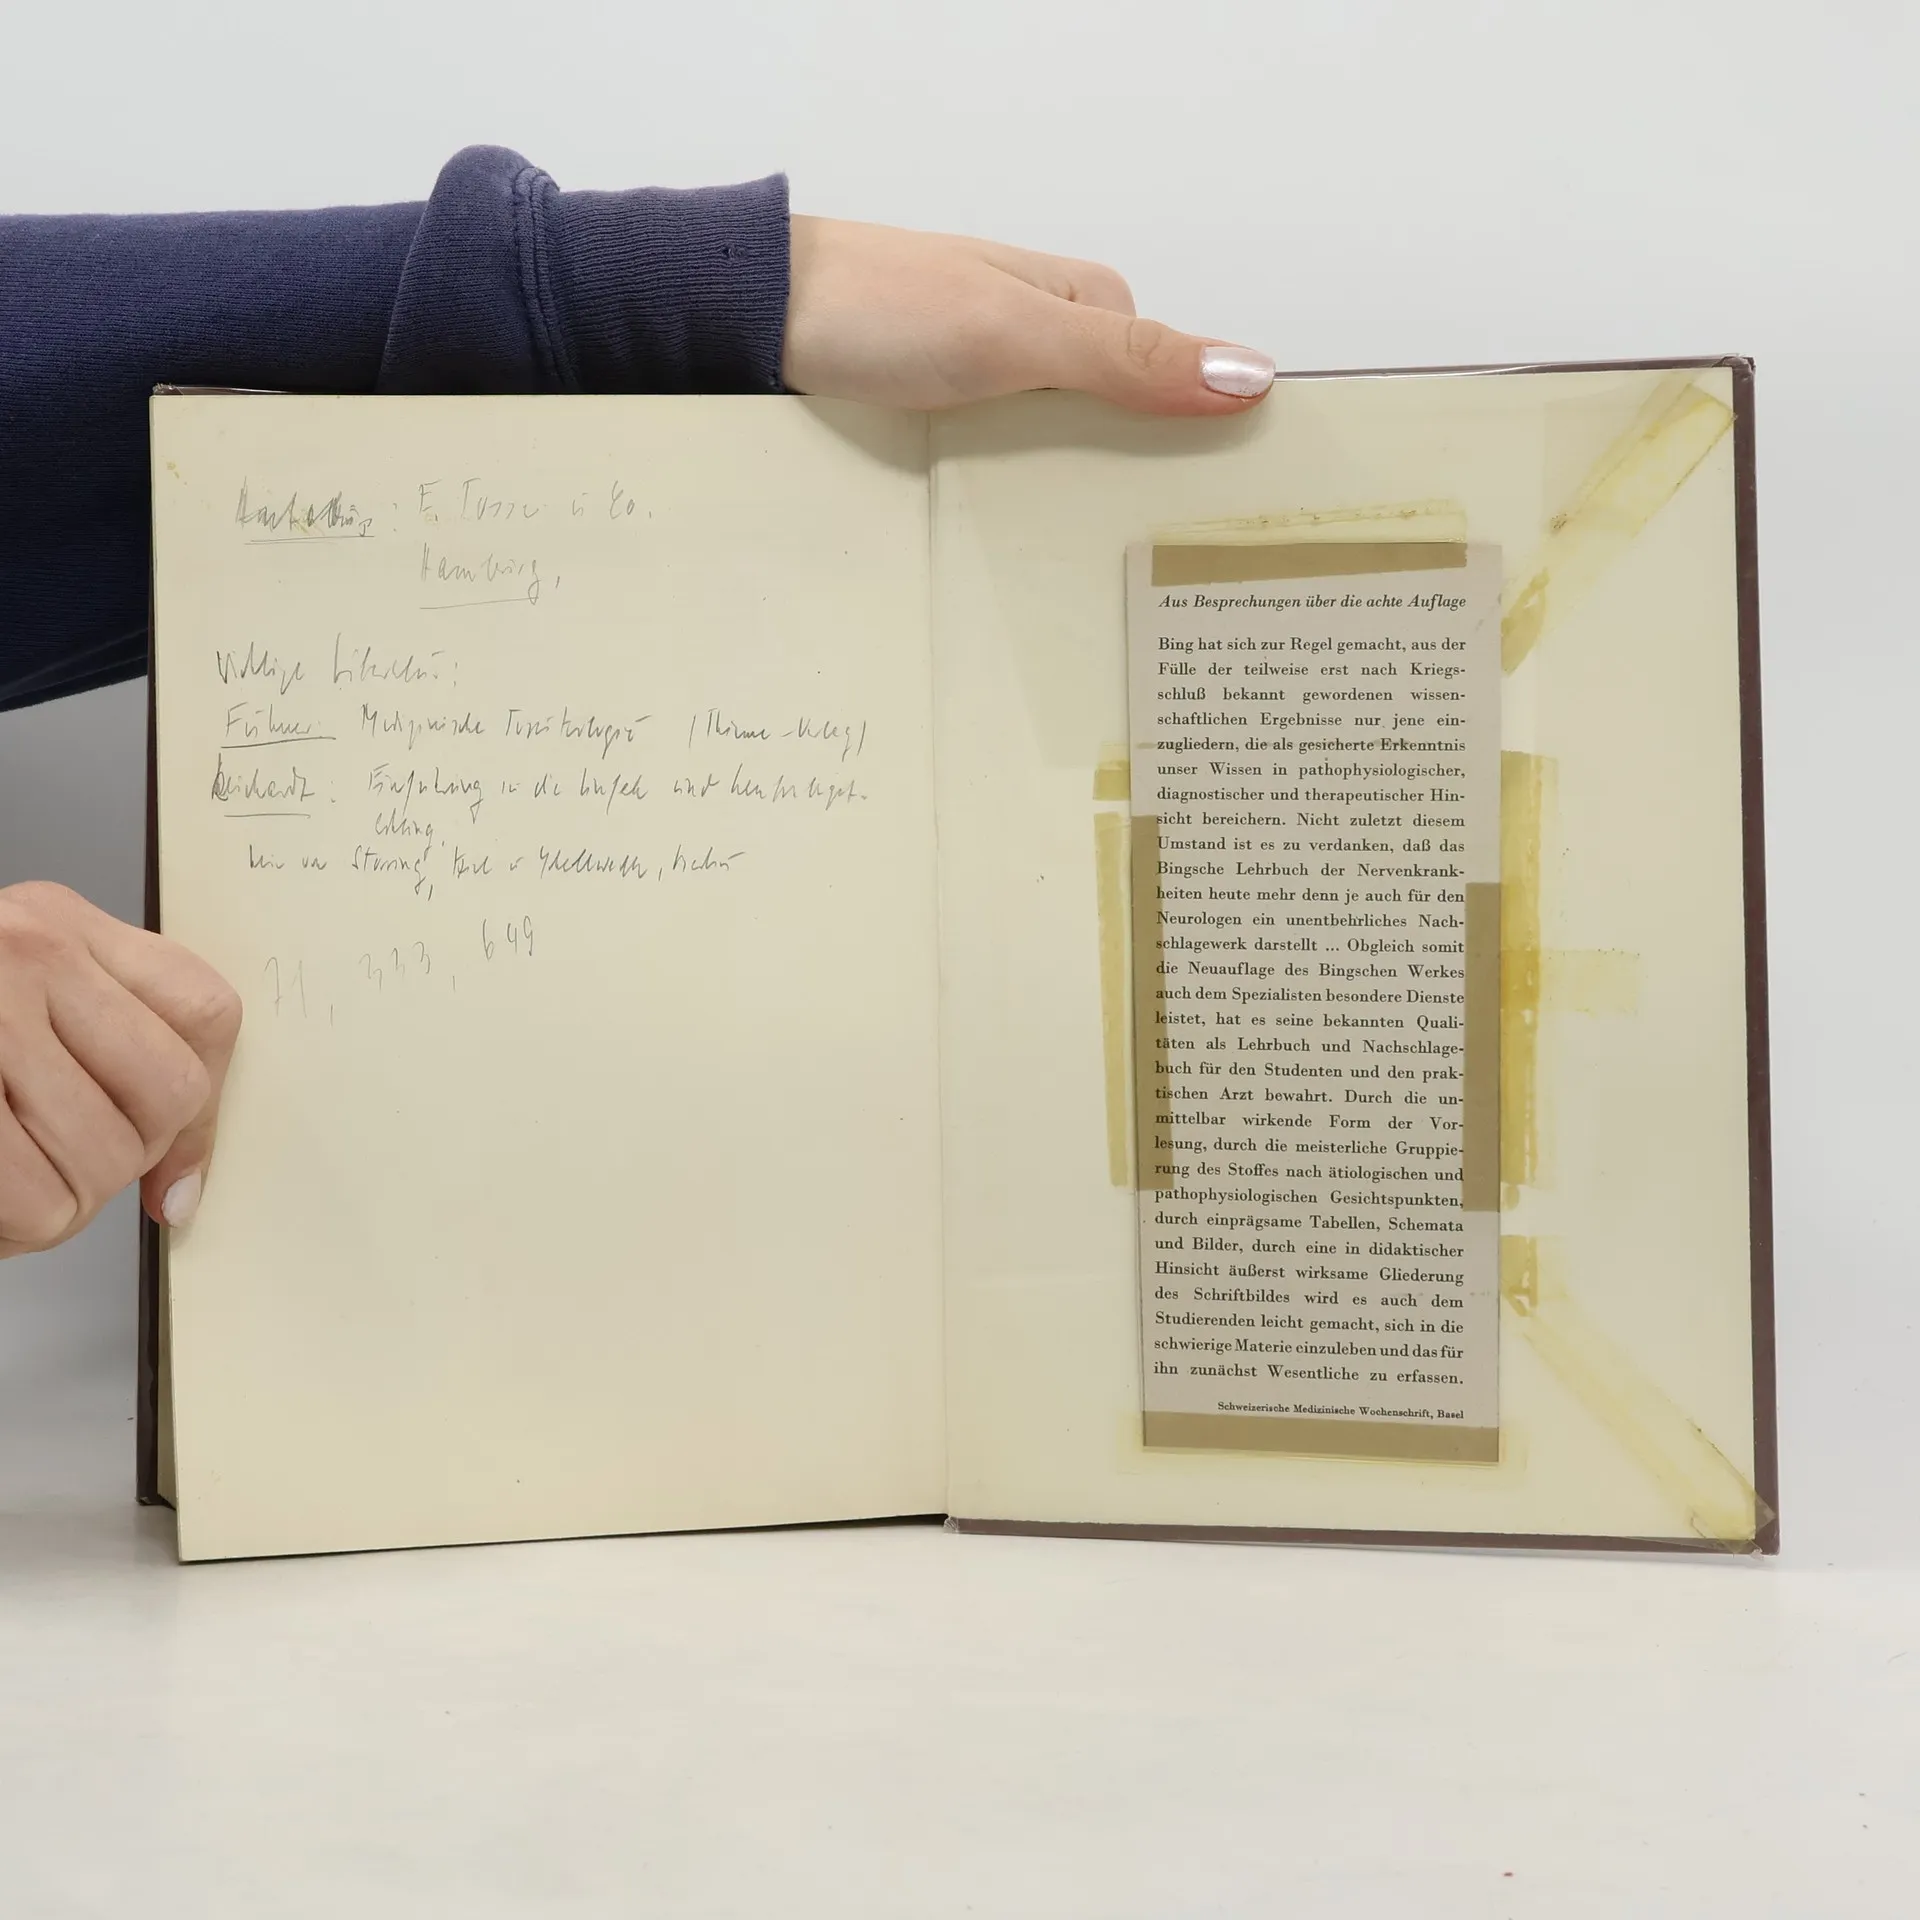 E. Tosse u Co.
Hamburg,
Wichtige Literatur:
Führer: Medizinische Toxikologie (Thieme-Verlag)
Reichardt: Einführung in die
71, 333, 649
Aus Besprechungen über die achte Auflage
Bing hat sich zur Regel gemacht, aus der
Fülle der teilweise erst nach Kriegs-
schluß bekannt gewordenen wissen-
schaftlichen Ergebnisse nur jene ein-
zugliedern, die als gesicherte Erkenntnis
unser Wissen in pathophysiologischer,
diagnostischer und therapeutischer Hin-
sicht bereichern. Nicht zuletzt diesem
Umstand ist es zu verdanken, daß das
Bingsche Lehrbuch der Nervenkrank-
heiten heute mehr denn je auch für den
Neurologen ein unentbehrliches Nach-
schlagewerk darstellt ... Obgleich somit
die Neuauflage des Bingschen Werkes
auch dem Spezialisten besondere Dienste
leistet, hat es seine bekannten Quali-
täten als Lehrbuch und Nachschlage-
buch für den Studenten und den prak-
tischen Arzt bewahrt. Durch die un-
mittelbar wirkende Form der Vor-
lesung, durch die meisterliche Gruppie-
rung des Stoffes nach ätiologischen und
pathophysiologischen Gesichtspunkten,
durch einprägsame Tabellen, Schemata
und Bilder, durch eine in didaktischer
Hinsicht äußerst wirksame Gliederung
des Schriftbildes wird es auch dem
Studierenden leicht gemacht, sich in die
schwierige Materie einzuleben und das für
ihn zunächst Wesentliche zu erfassen.
Schweizerische Medizinische Wochenschrift, Basel